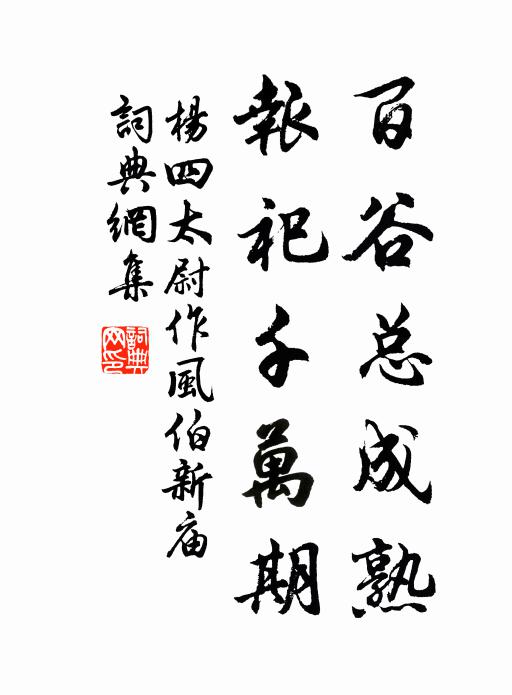 百谷总成熟
報祀千萬期
楊四太尉作風伯新庙
詞典網集
詞典网印